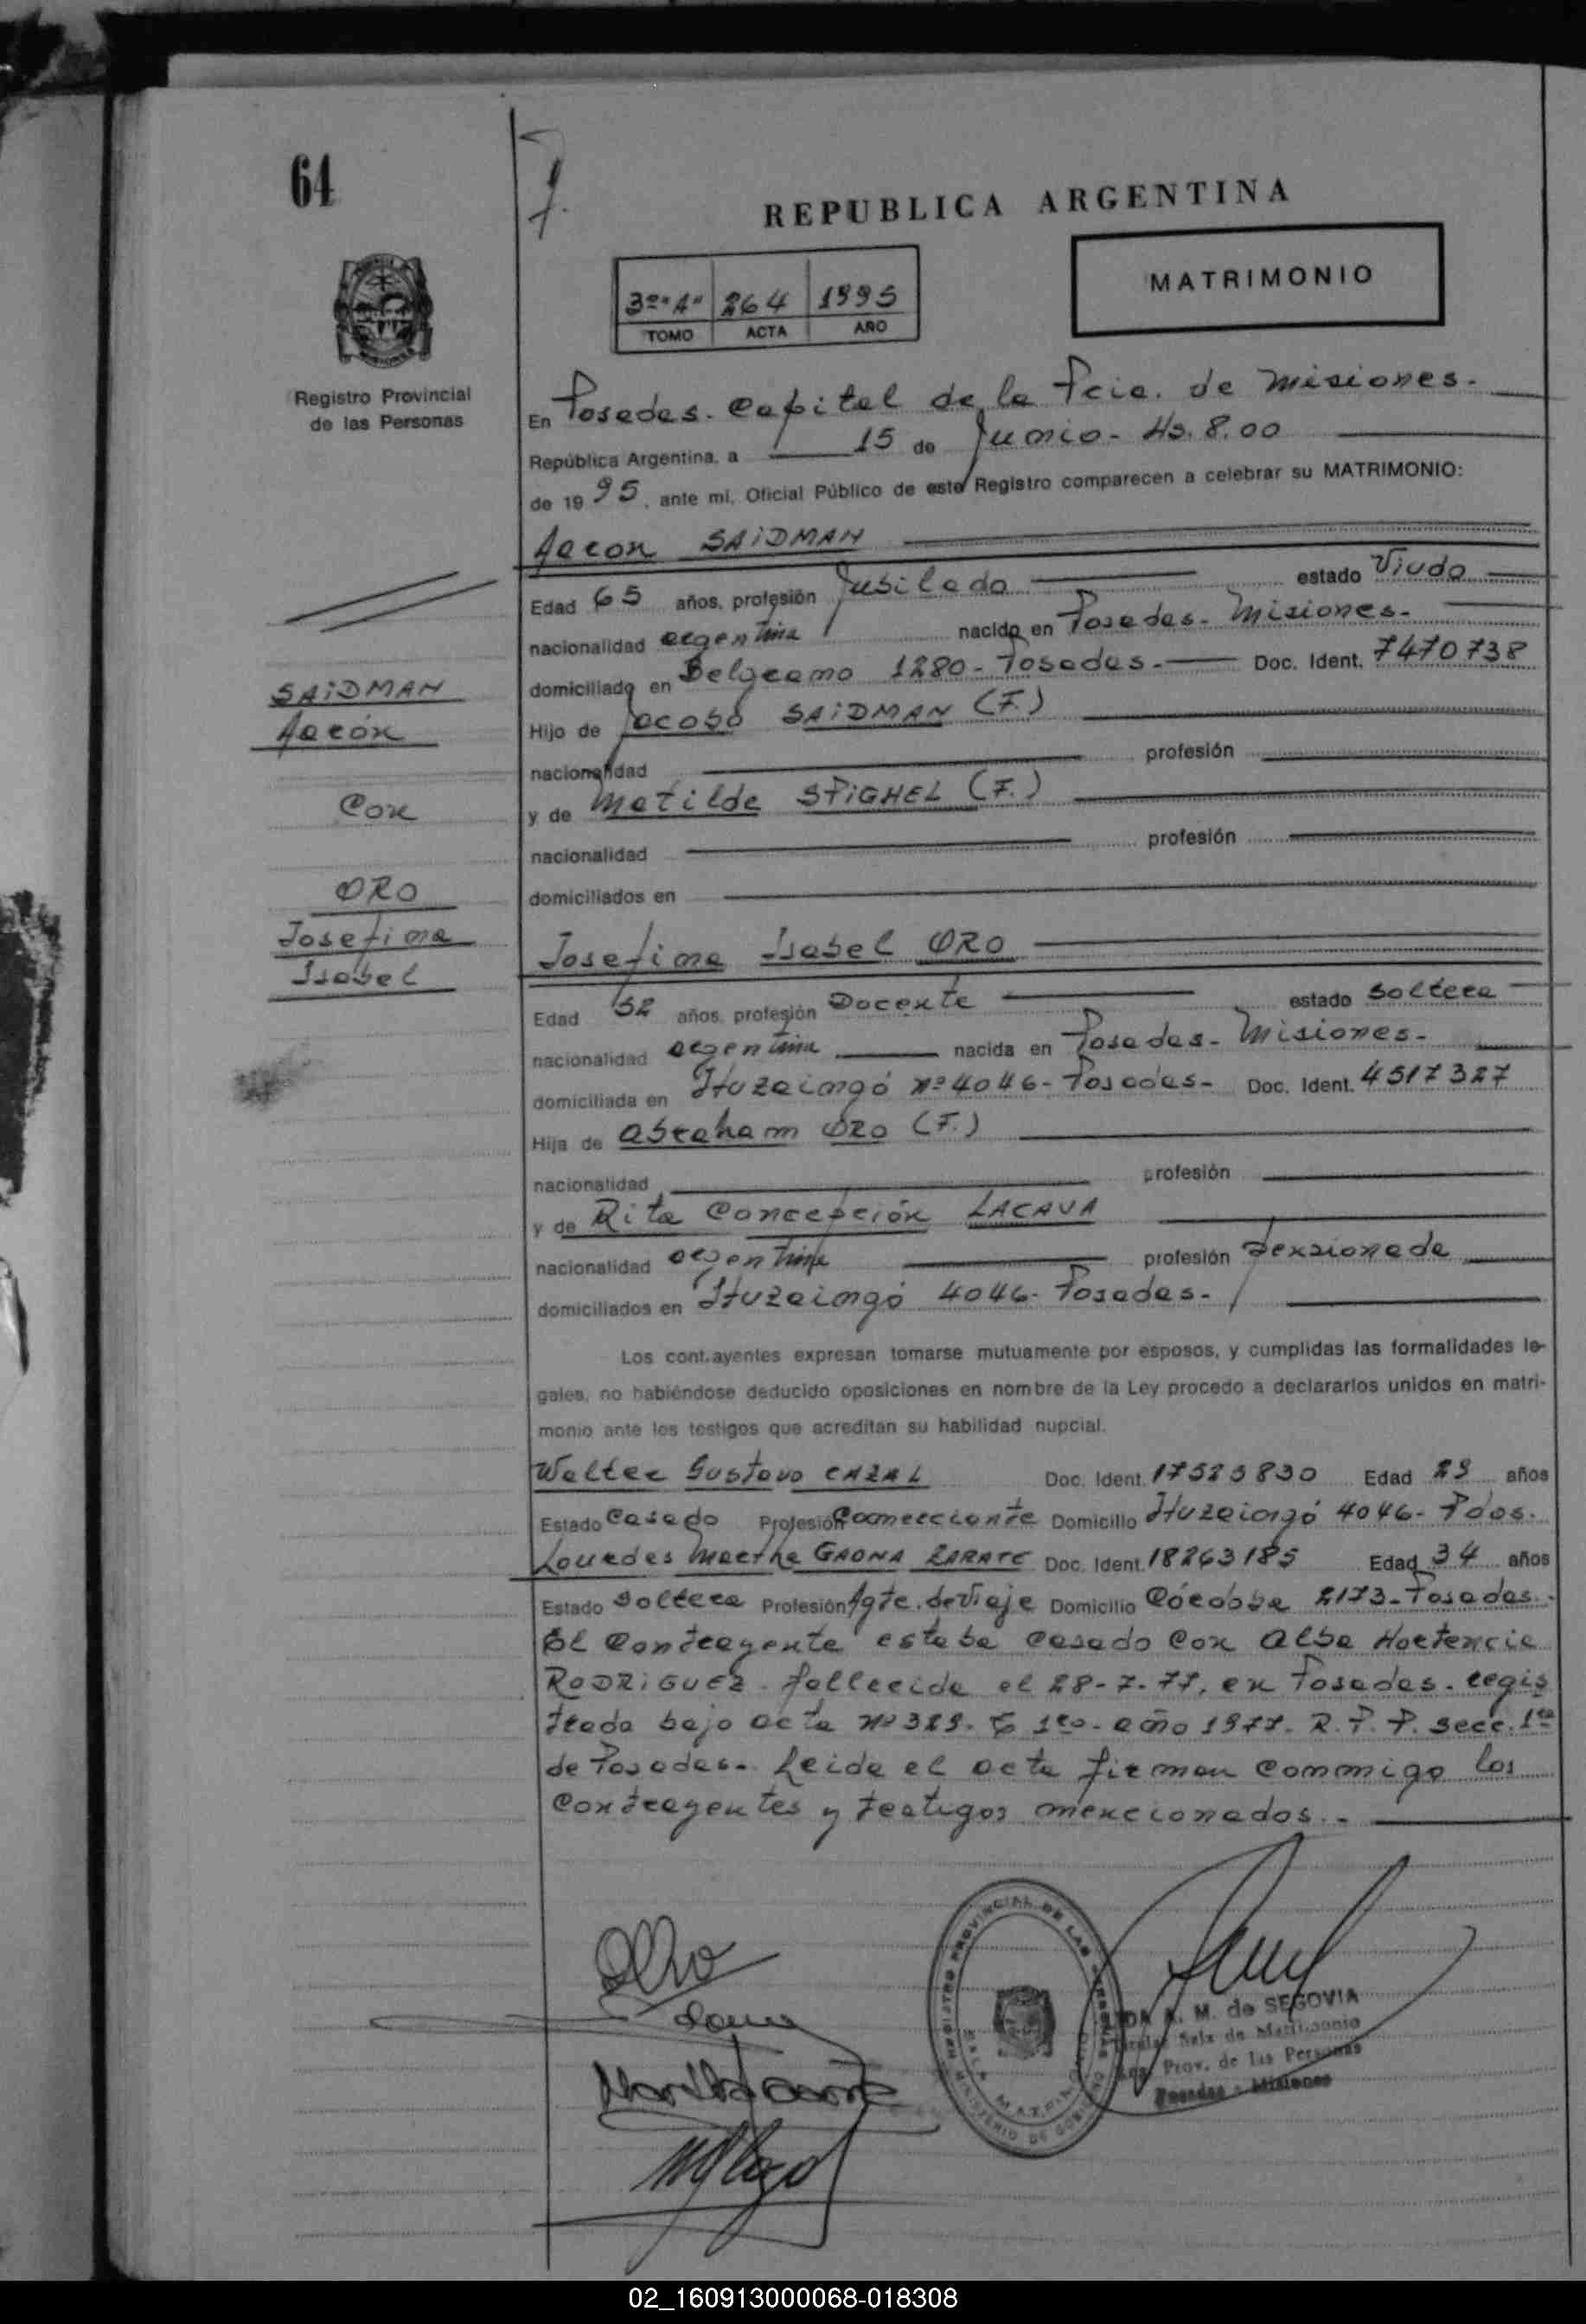 64
REPUBLICA ARGENTINA
3º "A" 264 1995
TOMO ACTA AÑO
MATRIMONIO
Registro Provincial
de las Personas
En Posadas. Capital de la Pcia. de Misiones.
República Argentina, a 15 de Junio - Hs. 8.00
de 1995, ante mi, Oficial Público de este Registro comparecen a celebrar su MATRIMONIO:
Aarón SAIDMAN
Edad 65 años, profesión Jubilado estado Viudo
nacionalidad argentina nacido en Posadas - Misiones.
domiciliado en Belgrano 1280 - Posadas. Doc. Ident. 7470738
SAIDMAN
Aarón
Hijo de Jacobo SAIDMAN (F.)
nacionalidad profesión
Con
y de Matilde SPIGHEL (F.)
nacionalidad profesión
ORO
domiciliados en
Josefina
Isabel
Josefina Isabel ORO
Edad 52 años, profesión Docente estado soltera
nacionalidad argentina nacida en Posadas - Misiones.
domiciliada en Ituzaingó nº 4046 - Posadas - Doc. Ident. 4517327
Hija de Abraham ORO (F.)
nacionalidad profesión
y de Rita Concepción LACAVA
nacionalidad argentina profesión pensionada
domiciliados en Ituzaingó 4046 - Posadas.
Los contrayentes expresan tomarse mutuamente por esposos, y cumplidas las formalidades le-
gales, no habiéndose deducido oposiciones en nombre de la Ley procedo a declararlos unidos en matri-
monio ante los testigos que acreditan su habilidad nupcial.
Walter Gustavo CAZAL Doc. Ident. 17523830 Edad 29 años
Estado Casado Profesión Comerciante Domicilio Ituzaingó 4046 - Pdas.
Lourdes Martha GAONA ZARATE Doc. Ident. 18263185 Edad 34 años
Estado soltera Profesión Agte. de Viaje Domicilio Córdoba 2173 - Posadas.
El Contrayente estaba casado con Alba Hortencia
RODRIGUEZ - fallecida el 28-7-77, en Posadas - regis
trada bajo acta nº 329 - Tº 1ro - año 1977 - R. P. P. Secc. 1ra
de Posadas - Leida el acta firman conmigo los
Contrayentes y testigos mencionados. -
REGISTRO PROVINCIAL DE LAS PERSONAS
SALA MATRIMONIO
MINISTERIO DE GOBIERNO
A. M. de SEGOVIA
Titular Sala de Matrimonio
Reg. Prov. de las Personas
Posadas - Misiones
02_160913000068-018308